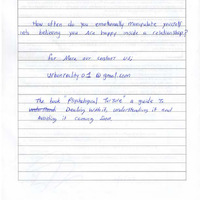 How often do you emotionally manipulate yourself
into believing you are happy inside a relationship?
For More on contact us,
urbanreality01@gmail.com
The book "Psychological Torture" a guide to
Dealing with it, understanding it and
healing it coming Soon.